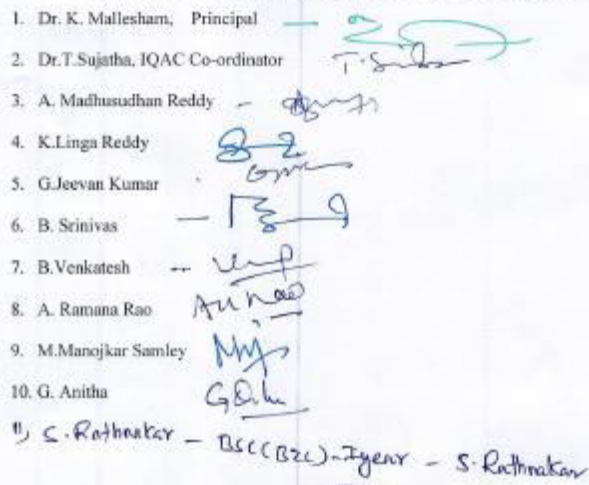 1. Dr. K. Mallesham, Principal —
2. Dr.T.Sujatha, IQAC Co-ordinator
3. A. Madhusudhan Reddy -
4. K.Linga Reddy
5. G.Jeevan Kumar
6. B. Srinivas —
7. B.Venkatesh --
8. A. Ramana Rao
9. M.Manojkar Samley
10. G. Anitha
11, S. Rathnakar - BSC(BZC)-I year - S. Rathnakar